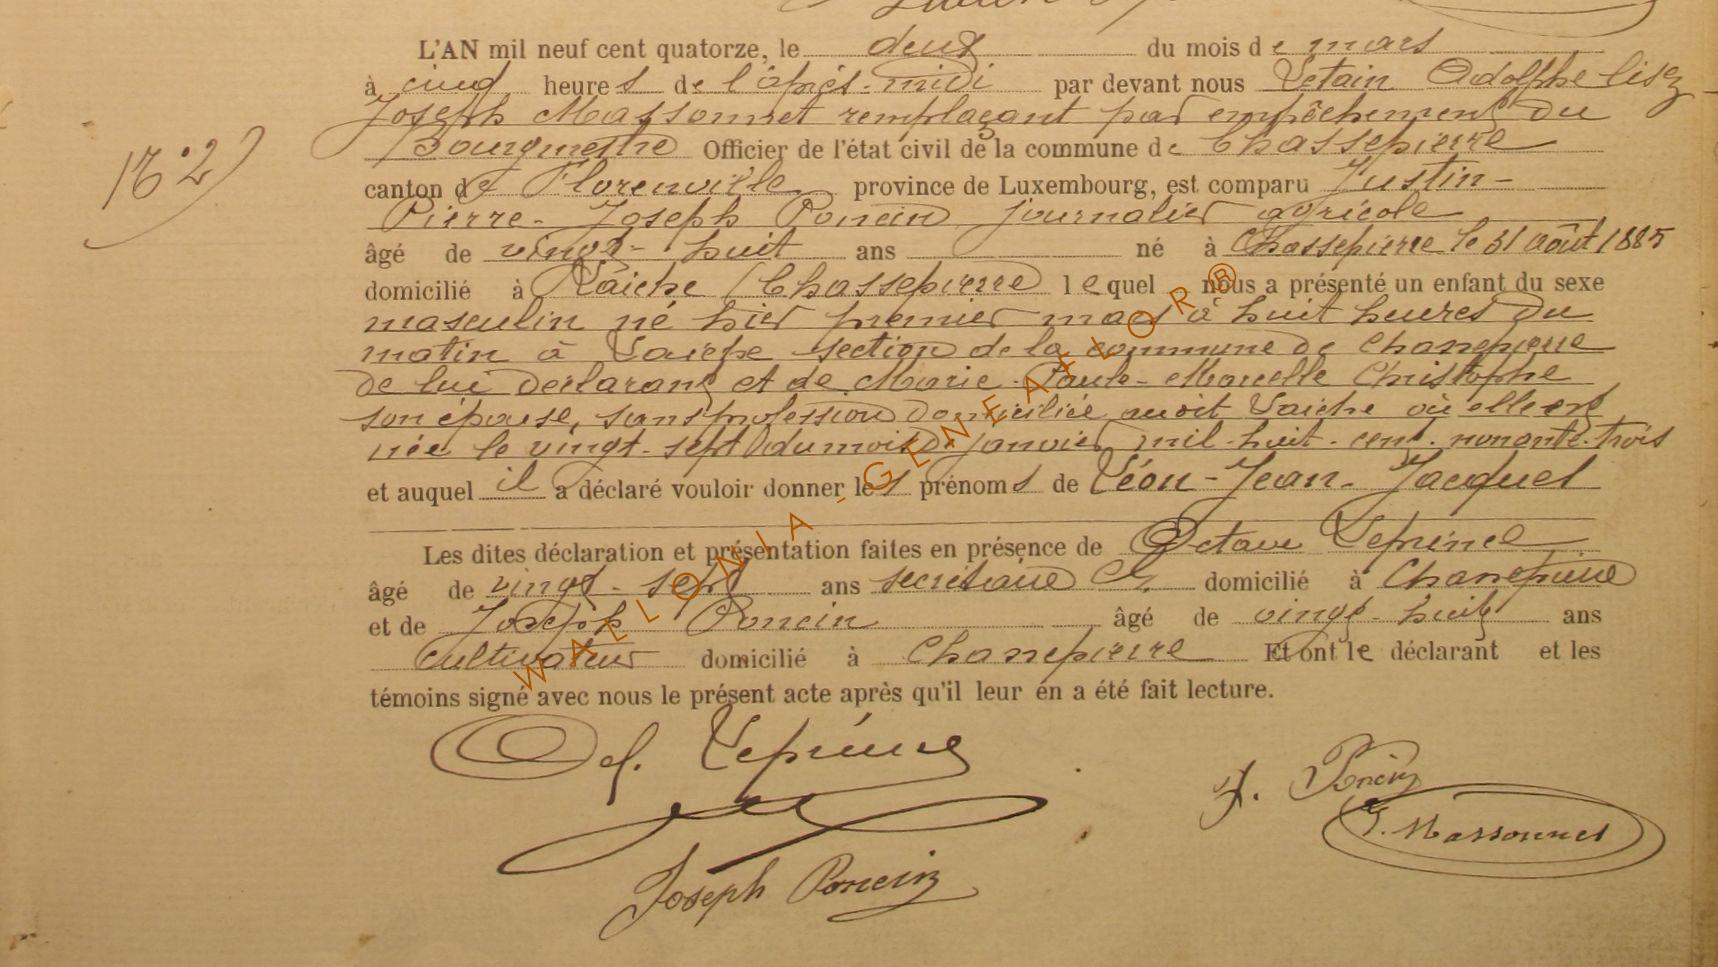 N° 2
L'AN mil neuf cent quatorze, le deux du mois de mars
à cinq heures de l'après-midi par devant nous Adolphe
Joseph Massonnet remplaçant par empêchement du
Bourgmestre Officier de l'état civil de la commune de Chassepierre
canton de Florenville province de Luxembourg, est comparu Justin-
Pierre-Joseph Poncin journalier agricole
âgé de vingt-huit ans né à Chassepierre le 31 août 1885
domicilié à Laiche (Chassepierre) lequel nous a présenté un enfant du sexe
masculin né hier premier mars à huit heures du
matin à Laiche section de la commune de Chassepierre
de lui déclarant et de Marie-Paule-Marcelle Christophe
son épouse, sans profession domiciliée audit Laiche où elle est
née le vingt-sept du mois de janvier mil-huit-cent-nonante-trois
et auquel il a déclaré vouloir donner les prénoms de Léon-Jean-Jacques
Les dites déclaration et présentation faites en présence de Octave Leprince
âgé de vingt-sept ans secrétaire Cl. domicilié à Chassepierre
et de Joseph Poncin âgé de vingt-huit ans
cultivateur domicilié à Chassepierre Et ont le déclarant et les
témoins signé avec nous le présent acte après qu'il leur en a été fait lecture.
Leprince
J. Poncin
J. Massonnet
Joseph Poncin
WALLONIA-GENEAFLOR®